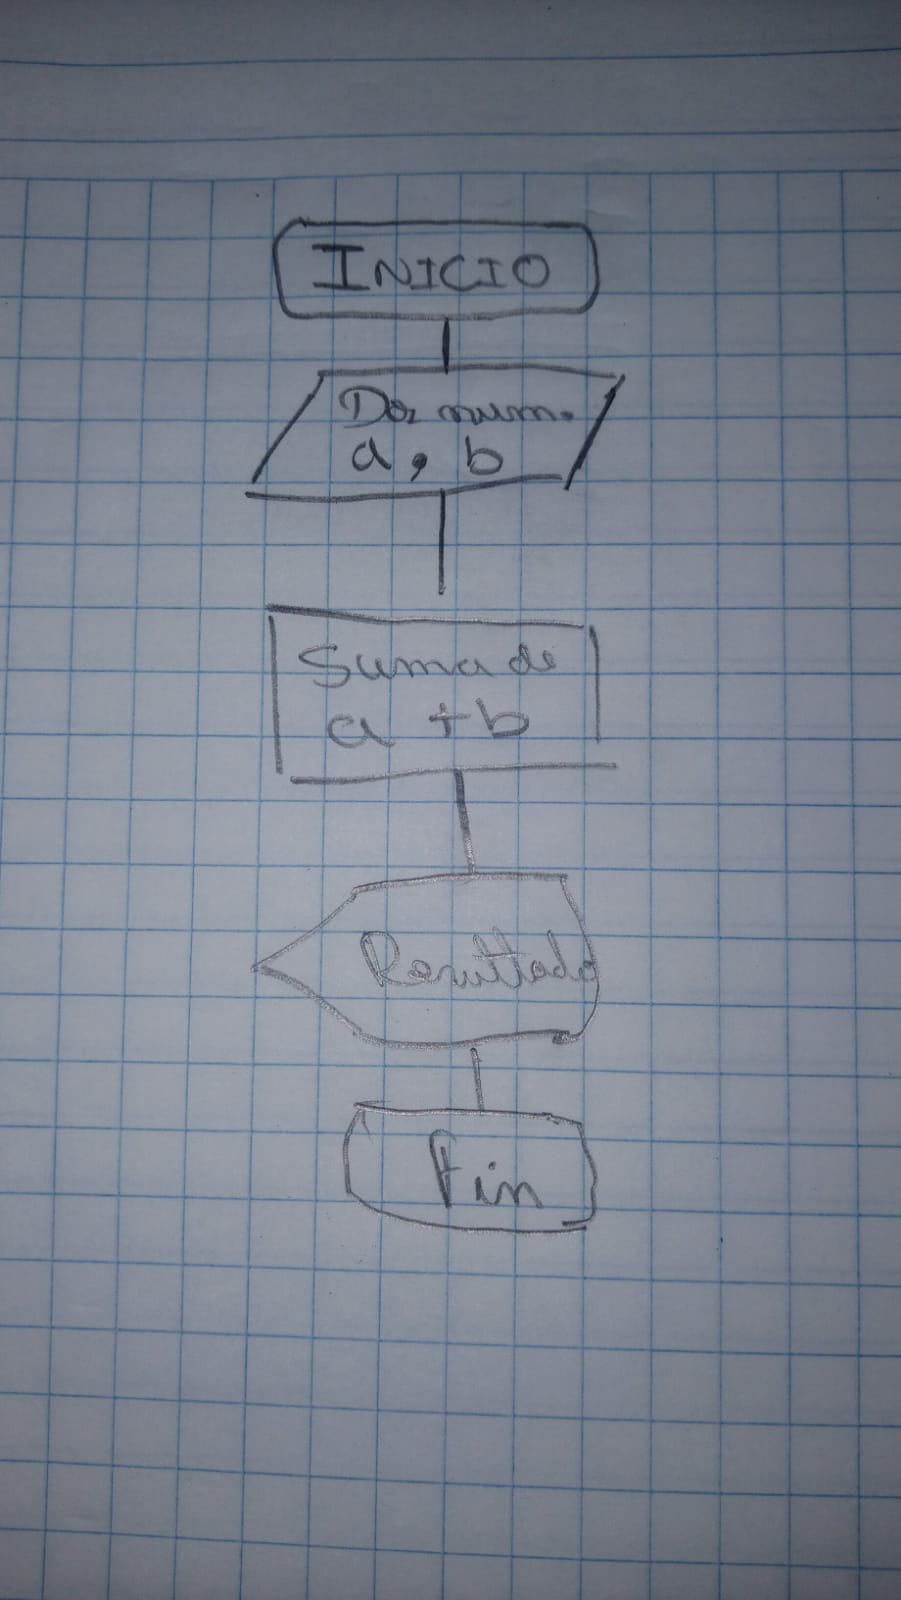 INICIO
Dos num.
a, b
Suma de
a + b
Resultado
Fin